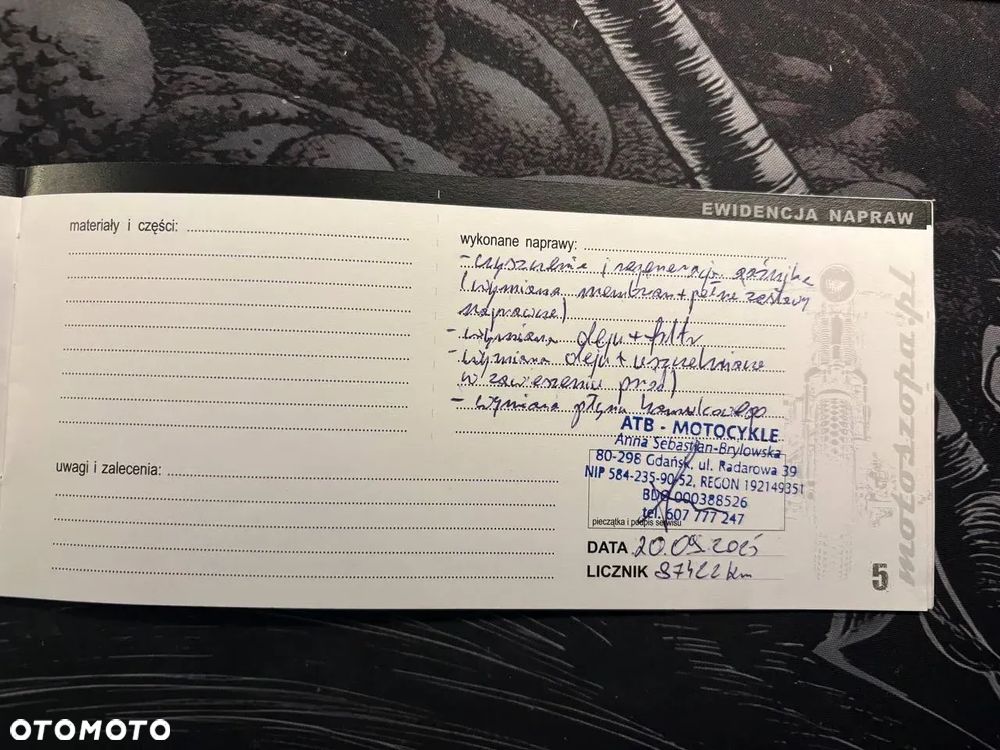 EWIDENCJA NAPRAW
materiały i części:
wykonane naprawy:
- czyszczenie i regeneracja gaźnika
(wymiana membran + pełne zestawy
naprawcze)
- wymiana oleju + filtr
- wymiana oleju + uszczelniacze
w zawieszeniu przód)
- wymiana płynu hamulcowego
uwagi i zalecenia:
ATB - MOTOCYKLE
Anna Sebastian-Brylowska
80-298 Gdańsk, ul. Radarowa 39
NIP 584-235-90-52, REGON 192149351
BDO 000388526
tel. 607 777 247
pieczątka i podpis serwisu
DATA 20.09.2025
LICZNIK 87422 km
motoszopa.pl
5
OTOMOTO